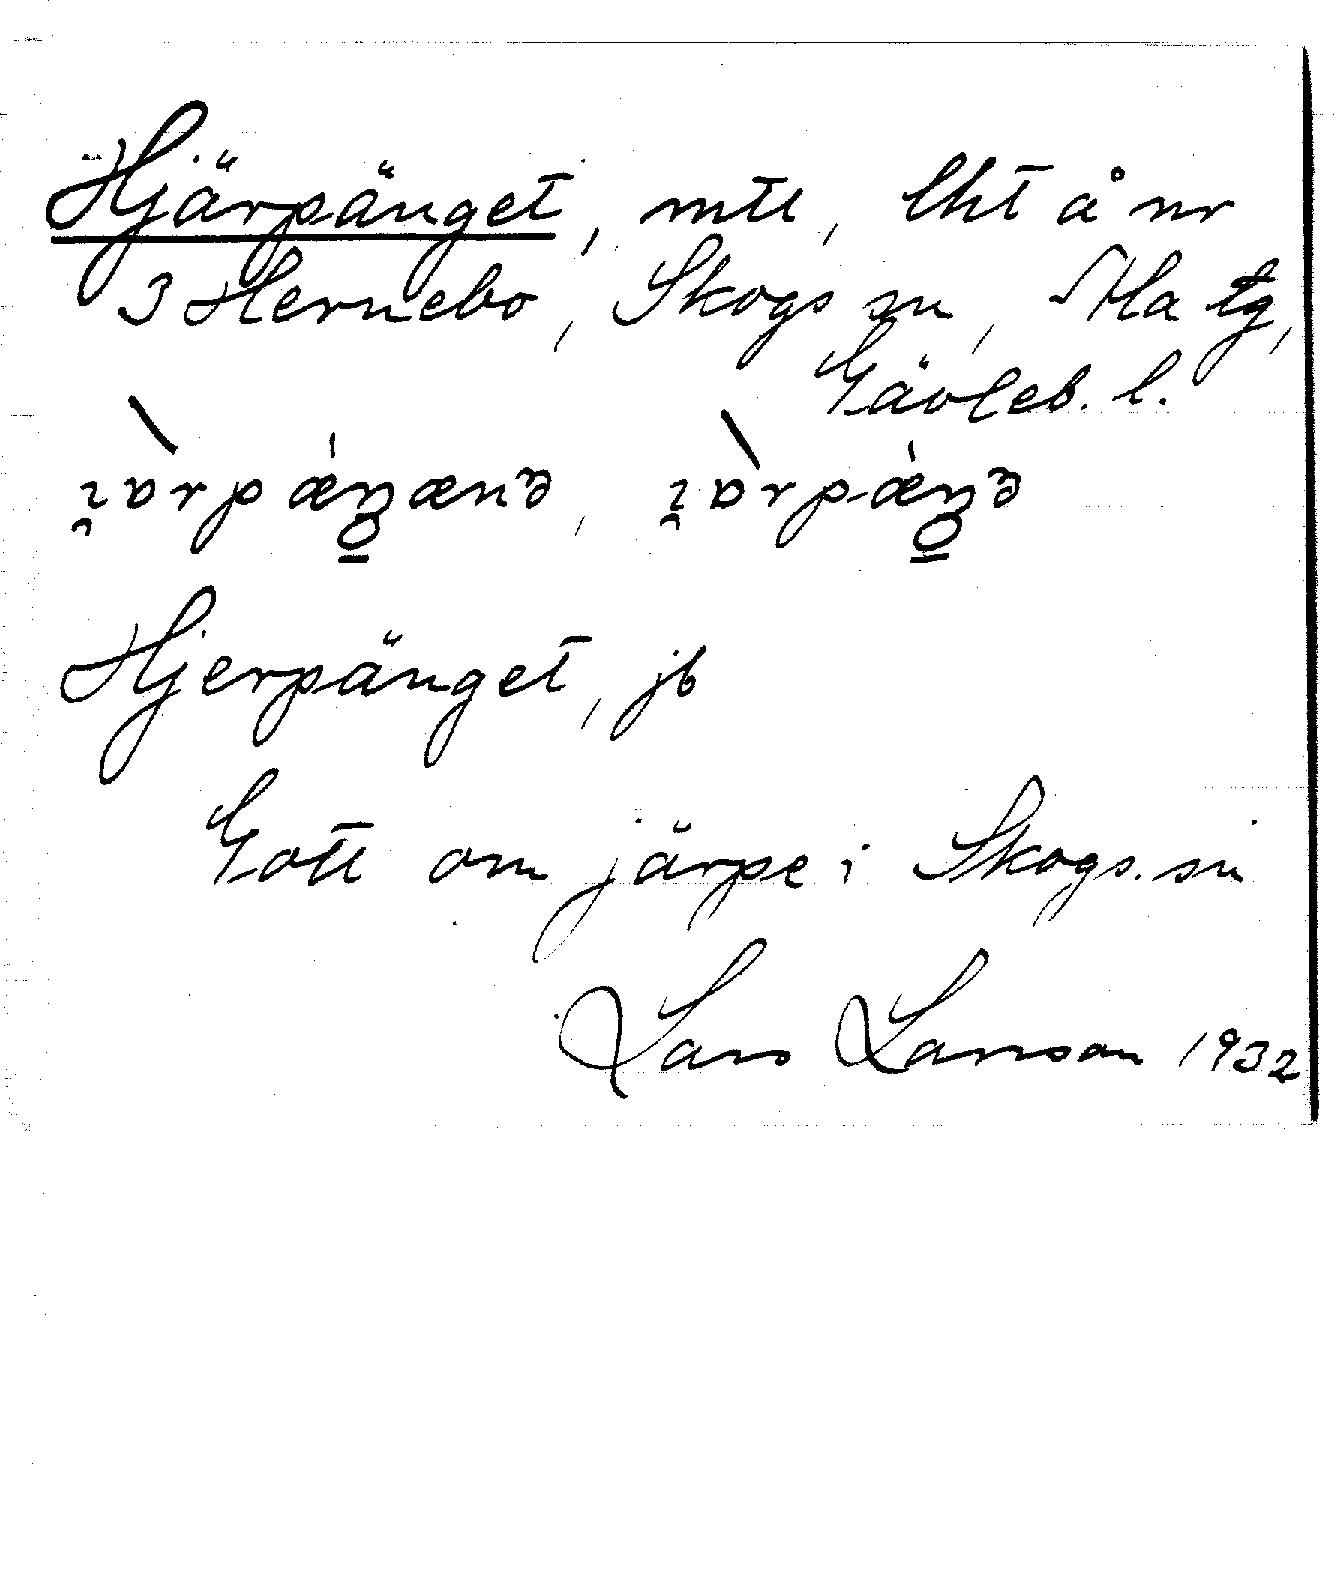 Hjärpänget, mtl, lht å nr
3 Hernebo, Skogs sn, Ala tg,
Gävleb. l.
Hjerpänget, jb
Gott om järpe i Skogs. sn
Lars Larsson 1932